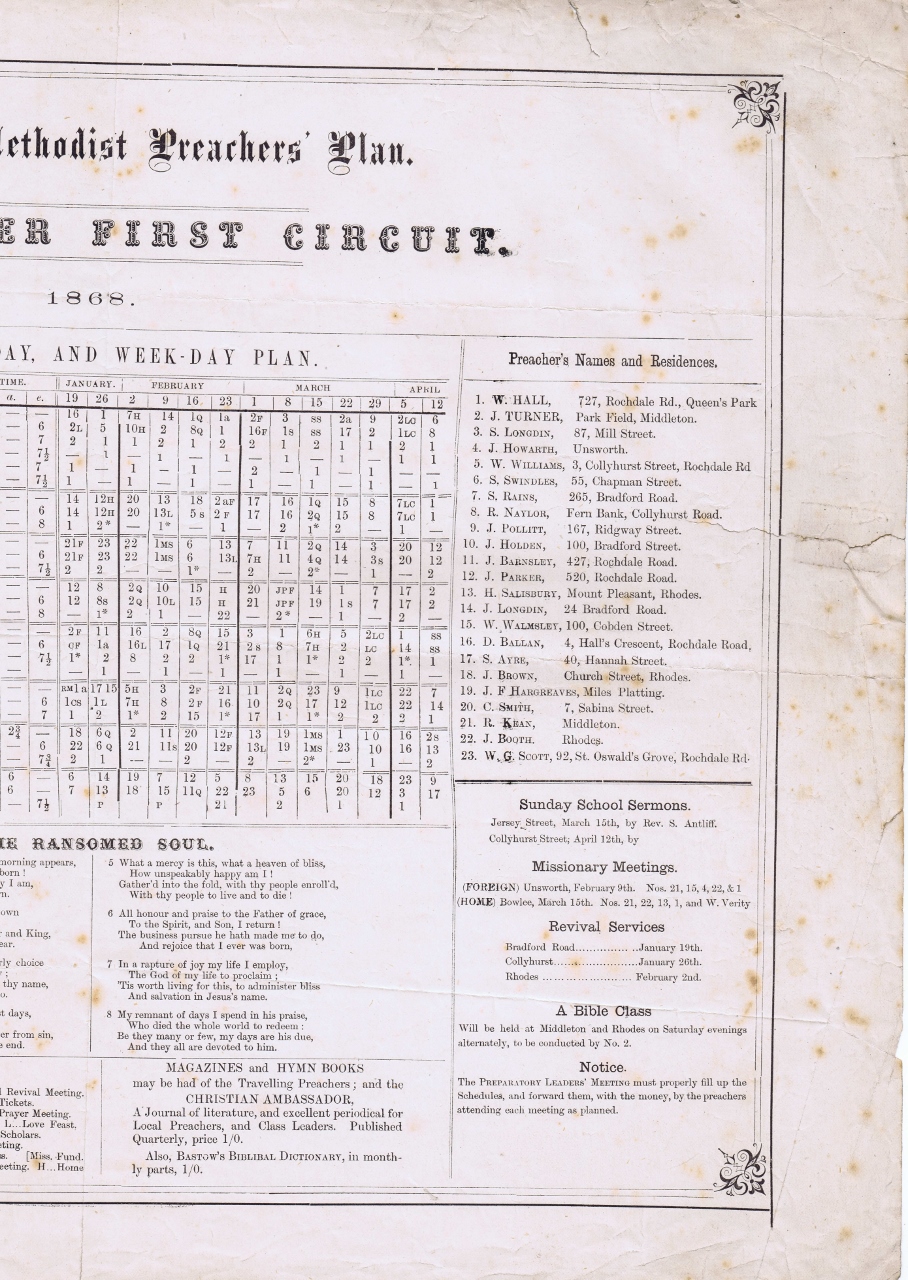 Methodist Preachers' Plan.
ER FIRST CIRCUIT.
1868.
DAY, AND WEEK-DAY PLAN.
TIME. JANUARY. FEBRUARY MARCH APRIL
a. e. 19 26 2 9 16 23 1 8 15 22 29 5 12
— — 16 1 7H 14 1Q 1a 2F 3 ss 2a 9 2LC 6
— 6 2L 5 10H 2 8Q 1 16F 1s ss 17 2 1LC 8
— 7 2 1 1 2 1 2 2 1 2 1 1 2 1
— 7½ — 1 — 1 — 1 — 1 — 1 — 1 1
— 7 1 — 1 — 1 — 2 — 1 — 1 — —
— 7½ 1 — 1 — 1 — 1 — 1 — 1 — 1
— — 14 12H 20 13 18 2aF 17 16 1Q 15 8 7LC 1
— 6 14 12H 20 13L 5s 2F 17 16 2Q 15 8 7LC 1
— 8 1 2* — 1* — 1 — 2 1* 2 — 1 —
— — 21F 23 22 1MS 6 13 7 11 2Q 14 3 20 12
— 6 21F 23 22 1MS 6 13L 7H 11 4Q 14 3s 20 12
— 7½ 2 2 — — 1* — 2 — 2* — 1 — 2
— — 12 8 2Q 10 15 H 20 JPF 14 1 7 17 2
— 6 12 8s 2Q 10L 15 H 21 JPF 19 1s 7 17 2
— 8 — 1* 2 1 — 22 — 2* — 1 — 2 —
— — 2F 11 16 2 8Q 15 3 1 6H 5 2LC 1 ss
— 6 QF 1a 16L 17 1Q 21 2s 8 7H 2 LC 14 ss
— 7½ 1* 2 8 2 2 1* 17 1 1* 2 2 1* 1
— — 1 — 1 — 1 — 1 — 1 — 1 —
— — RM1a 17 15 5H 3 2F 21 11 2Q 23 9 1LC 22 7
— 6 1cs 1L 7H 8 2F 16 10 2Q 17 12 1LC 22 14
— 7 1 2 1* 2 15 1* 17 1 1* 2 2 2 1
2¾ — 18 6Q 2 11 20 12F 13 19 1MS 1 10 16 2s
— 6 22 6Q 21 11s 20 12F 13L 19 1MS 23 10 16 13
— 7¾ 2 1 — — 2 — 2 — 2* — 1 — 2
6 — 6 14 19 7 12 5 8 13 15 20 18 23 9
6 — 7 13 18 15 11Q 22 23 5 6 20 12 3 17
7½ P P 21 2 1 1
HE RANSOMED SOUL.
morning appears,
born !
y I am,
n.
own
r and King,
ear.
rly choice
y ;
thy name,
o.
st days,
er from sin,
e end.
5 What a mercy is this, what a heaven of bliss,
How unspeakably happy am I !
Gather'd into the fold, with thy people enroll'd,
With thy people to live and to die !
6 All honour and praise to the Father of grace,
To the Spirit, and Son, I return !
The business pursue he hath made me to do,
And rejoice that I ever was born,
7 In a rapture of joy my life I employ,
The God of my life to proclaim ;
'Tis worth living for this, to administer bliss
And salvation in Jesus's name.
8 My remnant of days I spend in his praise,
Who died the whole world to redeem :
Be they many or few, my days are his due,
And they all are devoted to him.
l Revival Meeting.
Tickets.
Prayer Meeting.
L...Love Feast.
Scholars.
eting.
s. [Miss. Fund.
eeting. H...Home
MAGAZINES and HYMN BOOKS
may be had of the Travelling Preachers ; and the
CHRISTIAN AMBASSADOR,
A Journal of literature, and excellent periodical for
Local Preachers, and Class Leaders. Published
Quarterly, price 1/0.
Also, BASTOW'S BIBLIBAL DICTIONARY, in month-
ly parts, 1/0.
Preacher's Names and Residences,
1. W. HALL, 727, Rochdale Rd., Queen's Park
2. J. TURNER, Park Field, Middleton.
3. S. LONGDIN, 87, Mill Street.
4. J. HOWARTH, Unsworth.
5. W. WILLIAMS, 3, Collyhurst Street, Rochdale Rd
6. S. SWINDLES, 55, Chapman Street.
7. S. RAINS, 265, Bradford Road.
8. R. NAYLOR, Fern Bank, Collyhurst Road.
9. J. POLLITT, 167, Ridgway Street.
10. J. HOLDEN, 100, Bradford Street.
11. J. BARNSLEY, 427, Rochdale Road.
12. J. PARKER, 520, Rochdale Road.
13. H. SALISBURY, Mount Pleasant, Rhodes.
14. J. LONGDIN, 24 Bradford Road.
15. W. WALMSLEY, 100, Cobden Street.
16. D. BALLAN, 4, Hall's Crescent, Rochdale Road,
17. S. AYRE, 40, Hannah Street.
18. J. BROWN, Church Street, Rhodes.
19. J. F HARGREAVES, Miles Platting.
20. C. SMITH, 7, Sabina Street.
21. R. KEAN, Middleton.
22. J. BOOTH. Rhodes.
23. W. G. SCOTT, 92, St. Oswald's Grove, Rochdale Rd.
Sunday School Sermons.
Jersey Street, March 15th, by Rev. S. Antliff.
Collyhurst Street; April 12th, by
Missionary Meetings.
(FOREIGN) Unsworth, February 9th. Nos. 21, 15, 4, 22, & 1
(HOME) Bowlee, March 15th. Nos. 21, 22, 13, 1, and W. Verity
Revival Services
Bradford Road.............. ..January 19th.
Collyhurst........................January 26th.
Rhodes ......................... February 2nd.
A Bible Class
Will be held at Middleton and Rhodes on Saturday evenings
alternately, to be conducted by No. 2.
Notice.
The PREPARATORY LEADERS' MEETING must properly fill up the
Schedules, and forward them, with the money, by the preachers
attending each meeting as planned.